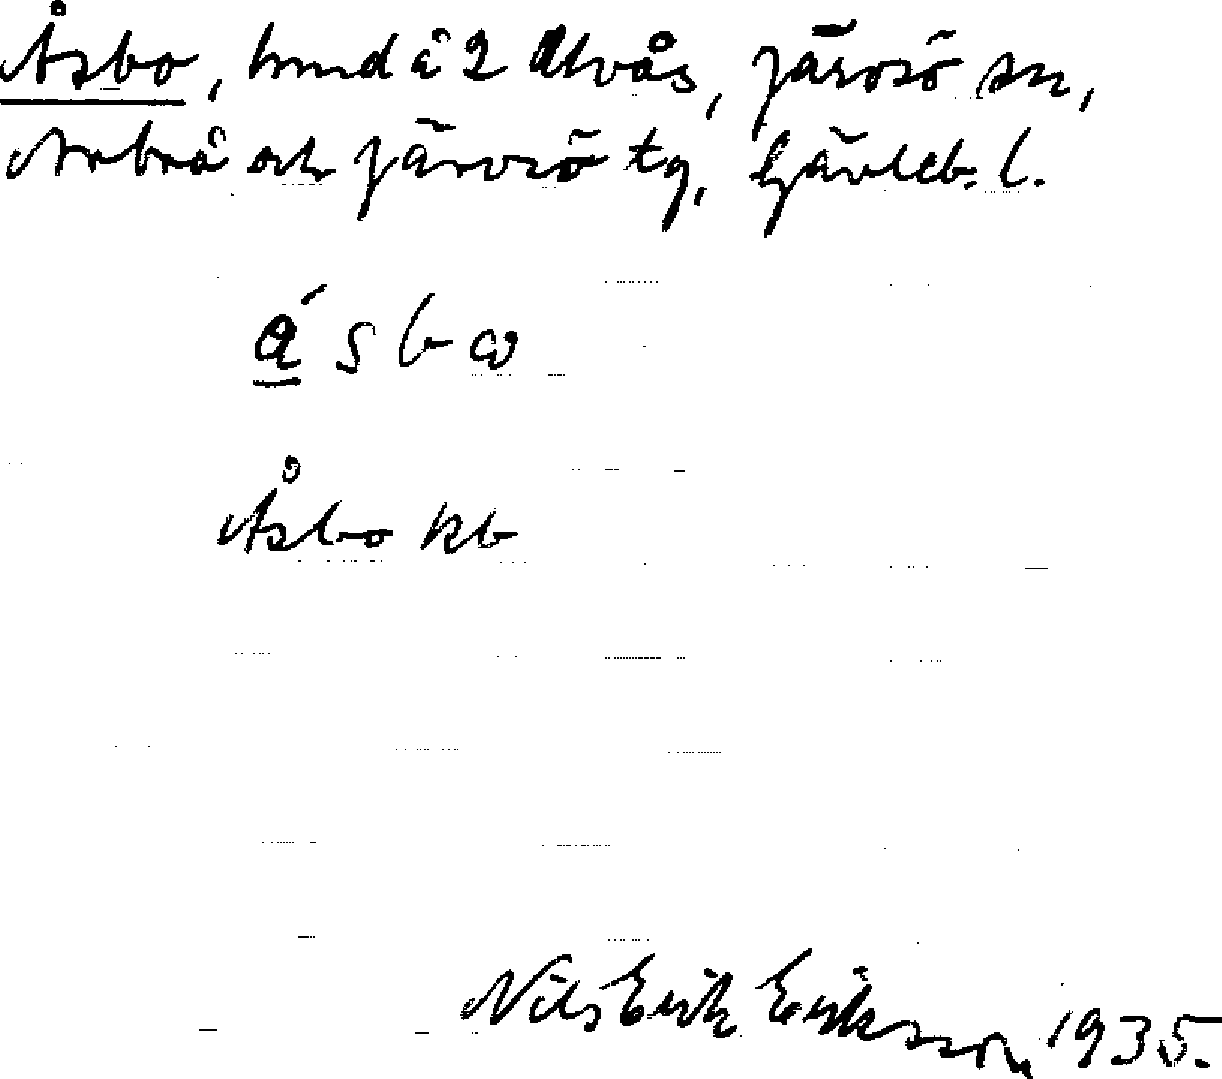 Åsbo, hmd å 2 Alvås, Järvsö sn,
Arbrå och Järvsö tg, Gävleb. l.
ásbω
Åsbo kb
Nils Erik Eriksson 1935.